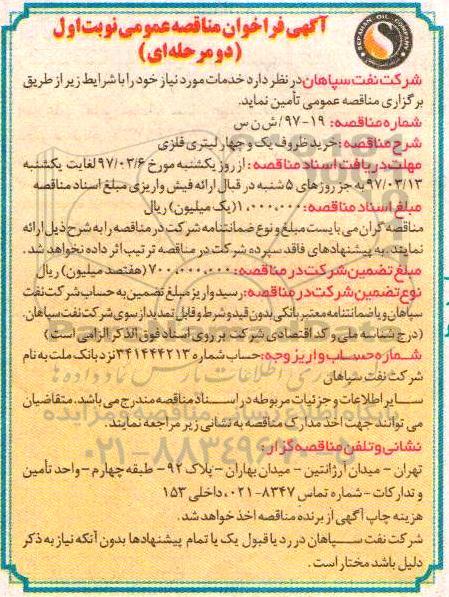 SEPAHAN OIL COMPANY
آگهی فراخوان مناقصه عمومی نوبت اول
(دو مرحله‌ای)
شرکت نفت سپاهان در نظر دارد خدمات مورد نیاز خود را با شرایط زیر از طریق
برگزاری مناقصه عمومی تأمین نماید.
شماره مناقصه: ۱۹-۹۷/ ش ن س
شرح مناقصه: خرید ظروف یک و چهار لیتری فلزی
مهلت دریافت اسناد مناقصه: از روز یکشنبه مورخ ۹۷/۰۳/۶ لغایت یکشنبه
۹۷/۰۳/۱۳ به جز روزهای ۵ شنبه در قبال ارائه فیش واریزی مبلغ اسناد مناقصه
مبلغ اسناد مناقصه: ۱،۰۰۰،۰۰۰ (یک میلیون) ریال
مناقصه گران می بایست مبلغ و نوع ضمانتنامه شرکت در مناقصه را به شرح ذیل ارائه
نمایند، به پیشنهادهای فاقد سپرده شرکت در مناقصه ترتیب اثر داده نخواهد شد.
مبلغ تضمین شرکت در مناقصه: ۷۰۰،۰۰۰،۰۰۰ (هفتصد میلیون) ریال
نوع تضمین شرکت در مناقصه: رسید واریز مبلغ تضمین به حساب شرکت نفت
سپاهان و یا ضمانتنامه معتبر بانکی بدون قید و شرط و قابل تمدید از سوی شرکت نفت سپاهان.
(درج شناسه ملی و کد اقتصادی شرکت بر روی اسناد فوق الذکر الزامی است)
شماره حساب واریز وجه: حساب شماره ۳۴۱۴۴۴۲۱۳ نزد بانک ملت به نام
شرکت نفت سپاهان
سایر اطلاعات و جزئیات مربوطه در اسناد مناقصه مندرج می باشد. متقاضیان
می توانند جهت اخذ مدارک مناقصه به نشانی زیر مراجعه نمایند.
پایگاه اطلاع رسانی مناقصه و مزایده
۰۲۱-۸۸۳۴۹۶۷۰-۵
نشانی و تلفن مناقصه گزار:
تهران - میدان آرژانتین - میدان بهاران - پلاک ۹۲ - طبقه چهارم - واحد تأمین
و تدارکات - شماره تماس ۸۳۴۷-۰۲۱، داخلی ۱۵۳
هزینه چاپ آگهی از برنده مناقصه اخذ خواهد شد.
شرکت نفت سپاهان در رد یا قبول یک یا تمام پیشنهادها بدون آنکه نیاز به ذکر
دلیل باشد مختار است.